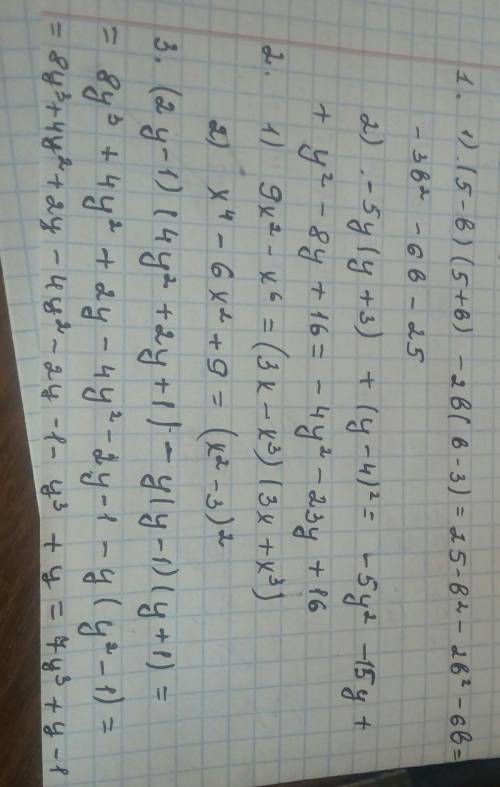 1. 1).(5-в)(5+в) - 2в(в-3) = 25-в²-2в²-6в=
- 3в² - 6в - 25
2) .-5y(y+3) + (y-4)² = -5y² -15y +
+ y² - 8y + 16 = - 4y² - 23y + 16
2. 1) 9x² - x⁶ = (3x - x³)(3x + x³)
2) x⁴ - 6x² + 9 = (x² - 3)²
3. (2y-1)(4y² + 2y + 1) - y(y-1)(y+1) =
= 8y³ + 4y² + 2y - 4y² - 2y - 1 - y(y² - 1) =
= 8y³ + 4y² + 2y - 4y² - 2y - 1 - y³ + y = 7y³ + y - 1